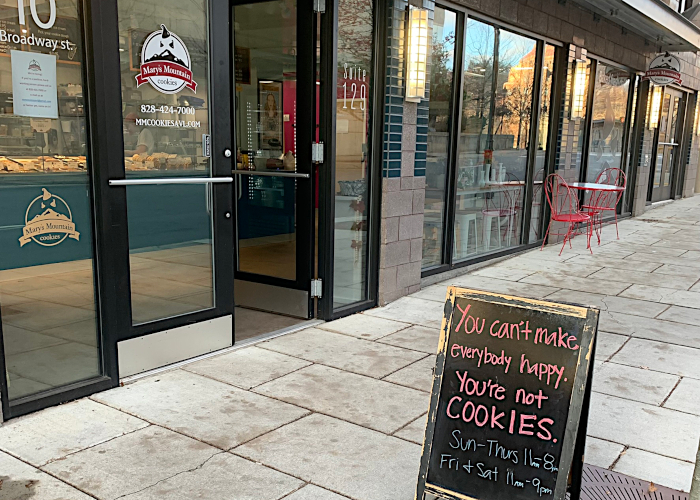 10
Broadway st.
Mary's Mountain
cookies
828-424-7000
MMCOOKIESAVL.COM
Suite
129
Mary's Mountain
cookies
You can't make
everybody happy.
You're not
COOKIES.
Sun-Thurs 11am-8pm
Fri & Sat 11am-9pm